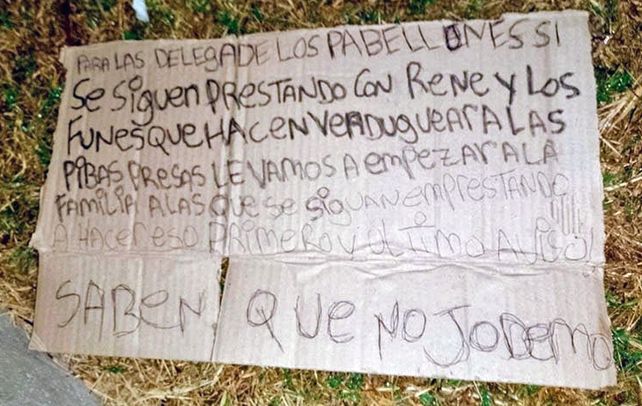 PARA LAS DELEGADE LOS PABELLONES SI
SE SIGUEN PRESTANDO CON RENE Y LOS
FUNES QUE HACEN VERDUGUEAR A LAS
PIBAS PRESAS LE VAMOS A EMPEZAR A LA
FAMILIA A LAS QUE SE SIGUAN EMPRESTANDO
A HACER ESO PRIMERO Y ULTIMO AVISO!
SABEN QUE NO JODEMO